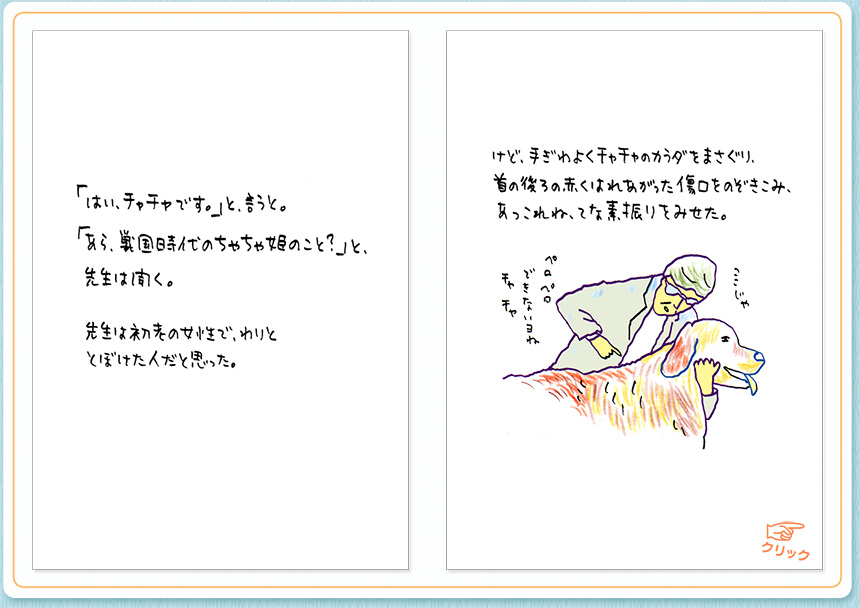 「はい、チャチャです。」と、言うと。
「あら、戦国時代のちゃちゃ姫のこと?」と、
先生は聞く。
先生は初老の女性で、わりと
とぼけた人だと思った。
けど、手ぎわよくチャチャのカラダをまさぐり、
首の後ろの赤くはれあがった傷口をのぞきこみ、
あっこれね、てな素振りをみせた。
ここじゃ
ペロペロ
できないヨね
チャチャ
クリック